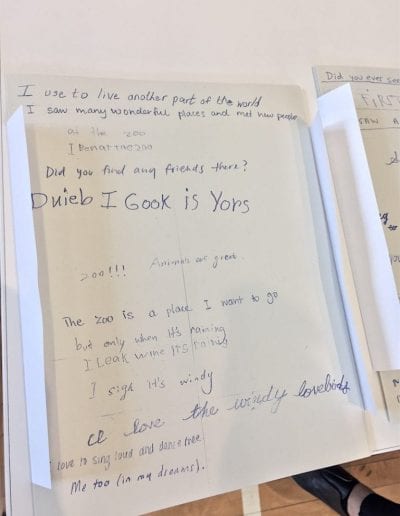 I use to live another part of the world
I saw many wonderful places and met new people
at the zoo
Did you find any friends there?
Dnieb I Gook is Yors
zoo!!! Animals are great.
The zoo is a place I want to go
but only when it's raining
I Leak wine it's raining
I sigh it's windy
I love the windy lovebirds
I love to sing loud and dance free
Me too (in my dreams).
Did you ever see
FIRST
SAW A